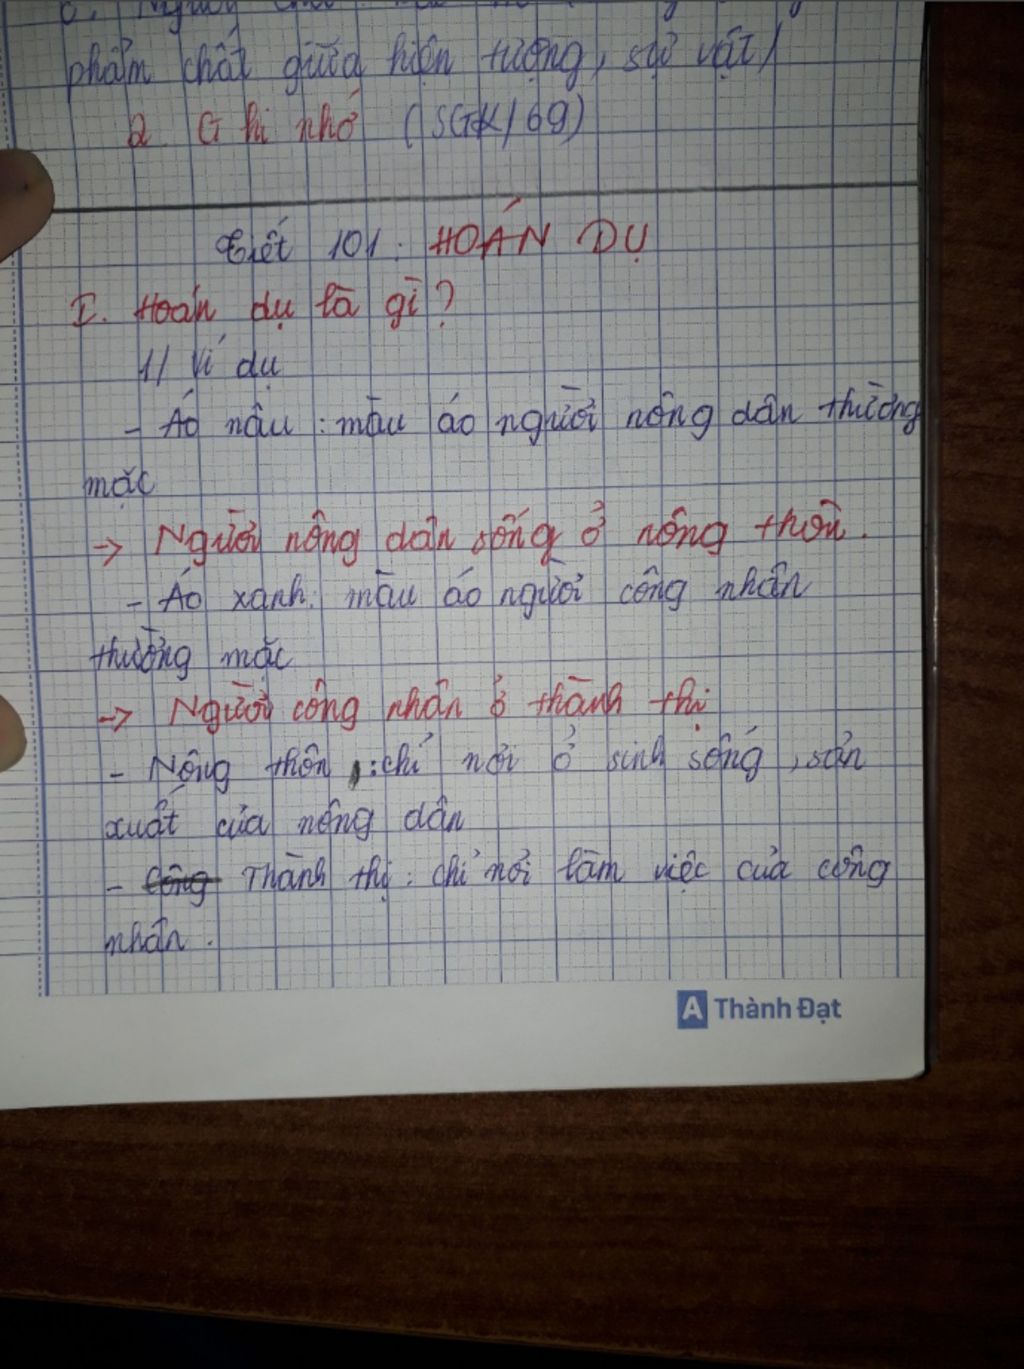 phẩm chất giữa hiện tượng, sự vật)
2. Ghi nhớ (SGK/69)
Tiết 101: HOÁN DỤ
I. Hoán dụ là gì?
1/ Ví dụ
- Áo nâu : màu áo người nông dân thường
mặc
-> Người nông dân sống ở nông thôn.
- Áo xanh: màu áo người công nhân
thường mặc
-> Người công nhân ở thành thị
- Nông thôn : chỉ nơi ở sinh sống, sản
xuất của nông dân
- Công Thành thị : chỉ nơi làm việc của công
nhân.
A Thành Đạt